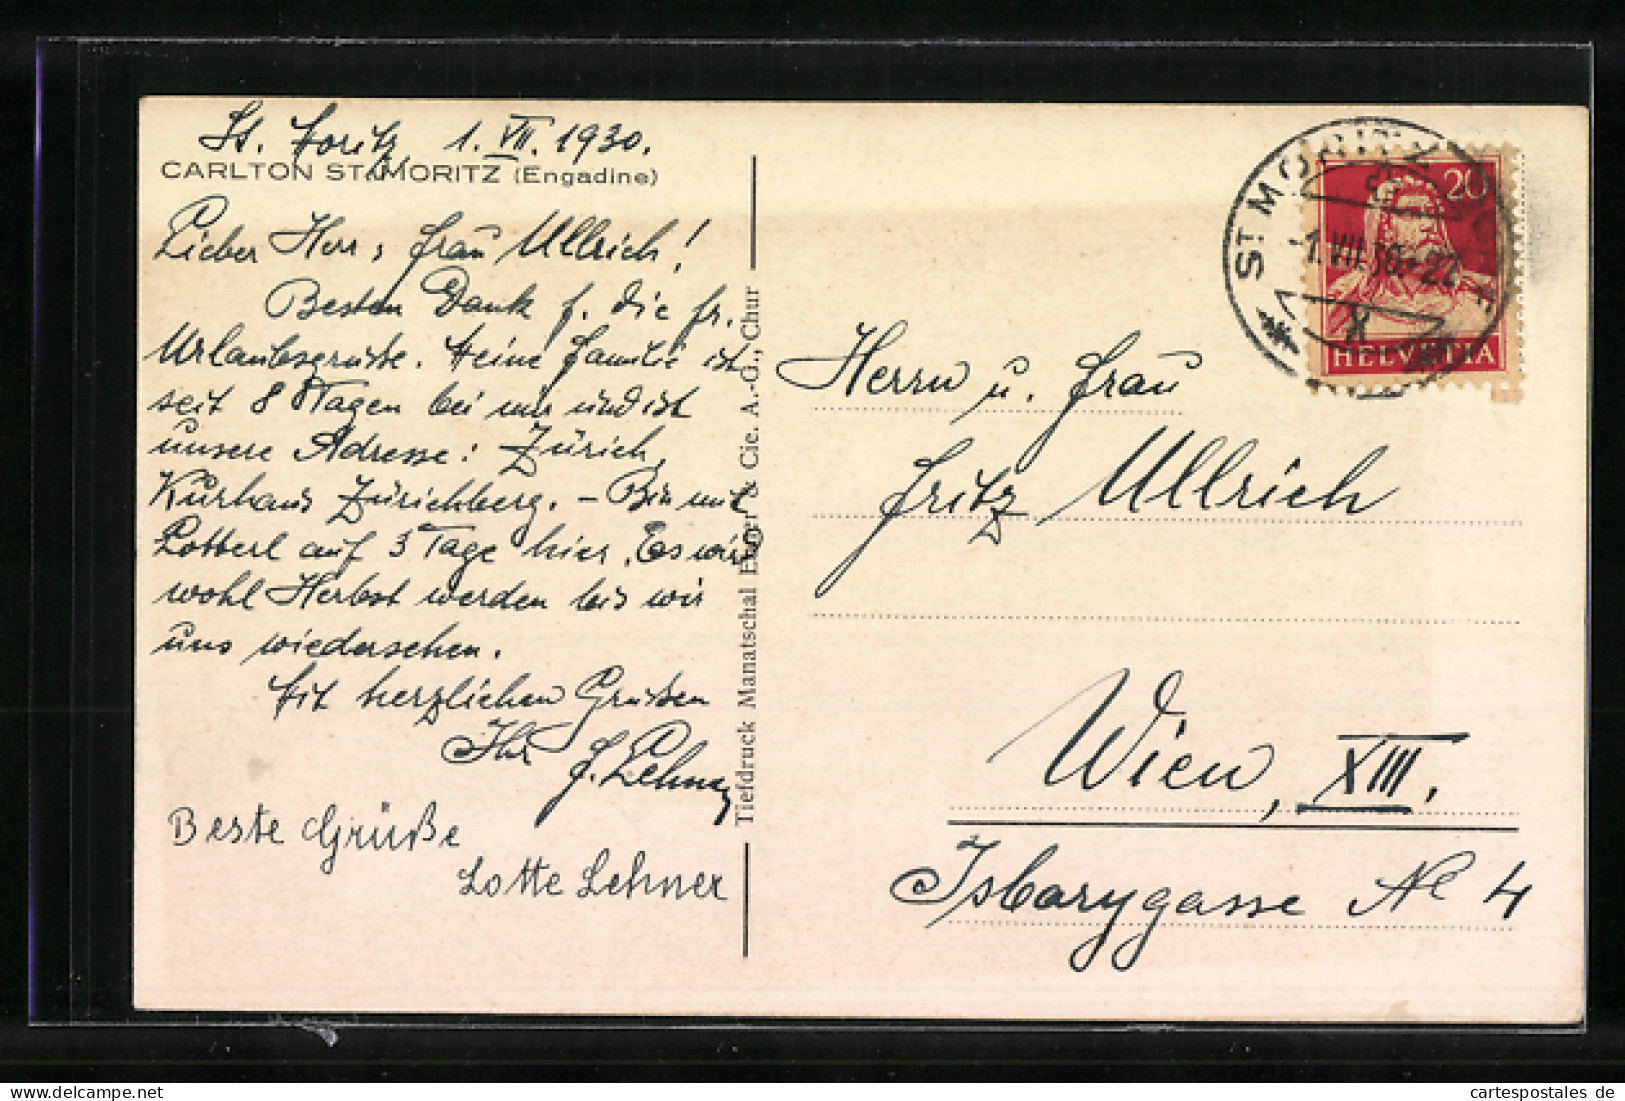 St. Moritz 1. VII. 1930.
CARLTON ST. MORITZ (Engadine)
Lieber Herr, Frau Ullrich!
Besten Dank f. die fr.
Urlaubsgrüße. Meine Familie ist
seit 8 Tagen bei mir und ist
unsere Adresse: Zürich,
Kurhaus Zürichberg. – Bin mit
Lotterl auf 3 Tage hier. Es wird
wohl Herbst werden bis wir
uns wiedersehen.
Mit herzlichen Grüßen
Ihr F. Lehner
Beste Grüße
Lotte Lehner
Tiefdruck Manatschal Ebner & Cie. A.-G., Chur
ST. MORITZ DORF
-1.VII.30.-22
X
20
HELVETIA
Herrn u. Frau
Fritz Ullrich
Wien, XIII.
Isbarygasse No 4
cartespostales de